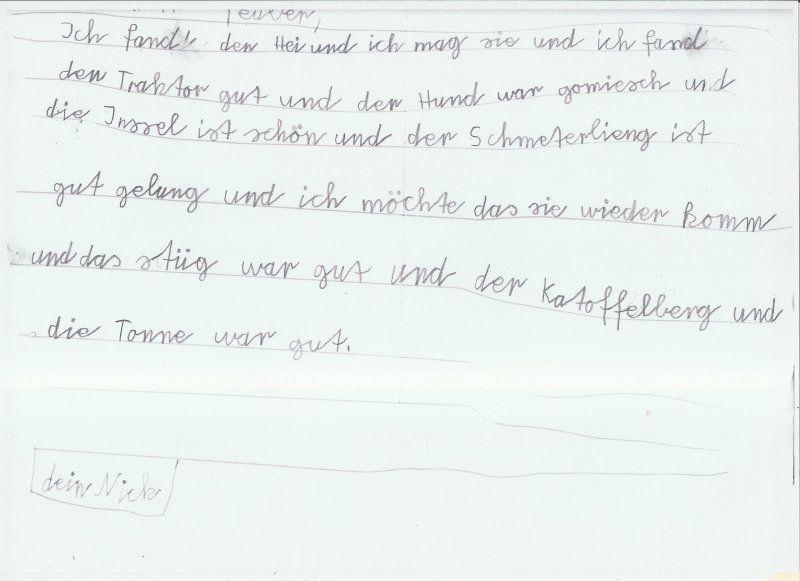 Ich fand den Hei und ich mag sie und ich fand
den Traktor gut und der Hund war gomiesch und
die Inssel ist schön und der Schmeterlieng ist
gut gelung und ich möchte das sie wieder komm
und das stüg war gut und der Katoffelberg und
die Tonne war gut.
dein Nick